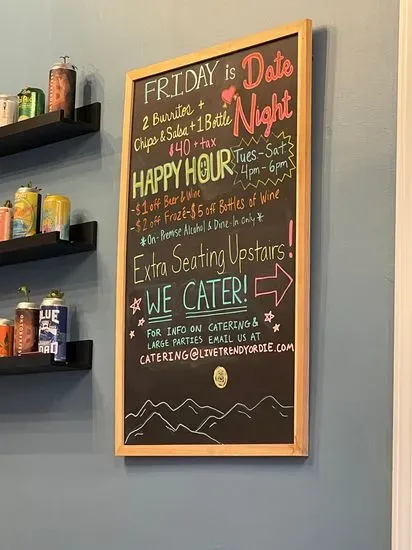 FRIDAY is Date
Night
2 Burritos +
Chips & Salsa + 1 Bottle
$40 + tax
HAPPY HOUR
Tues-Sat
4pm-6pm
-$1 off Beer & Wine
-$2 off Frozé -$5 off Bottles of Wine
*On-Premise Alcohol & Dine-In only*
Extra Seating Upstairs!
WE CATER!
FOR INFO ON CATERING &
LARGE PARTIES EMAIL US AT
CATERING@LIVETRENDYORDIE.COM